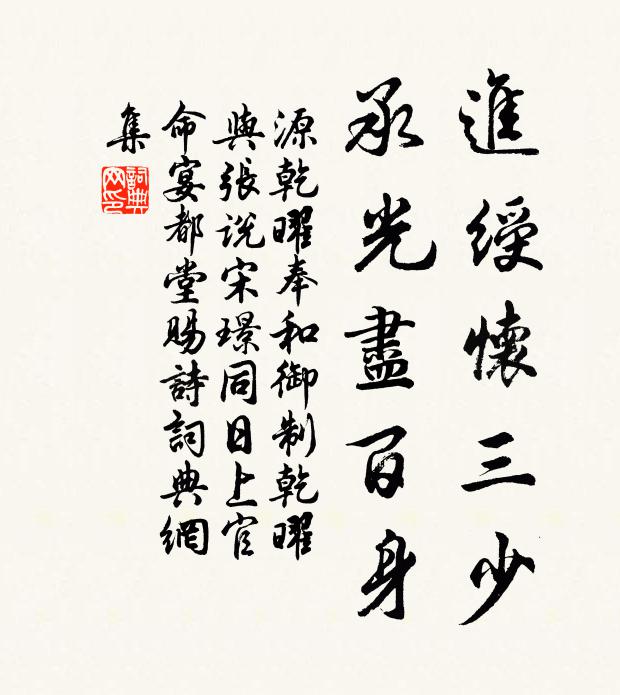 進綬懷三少
承光盡百身
源乾曜奉和御制乾曜
與張說宋璟同日上官
命宴都堂賜詩詞典網
集
詞典
网印